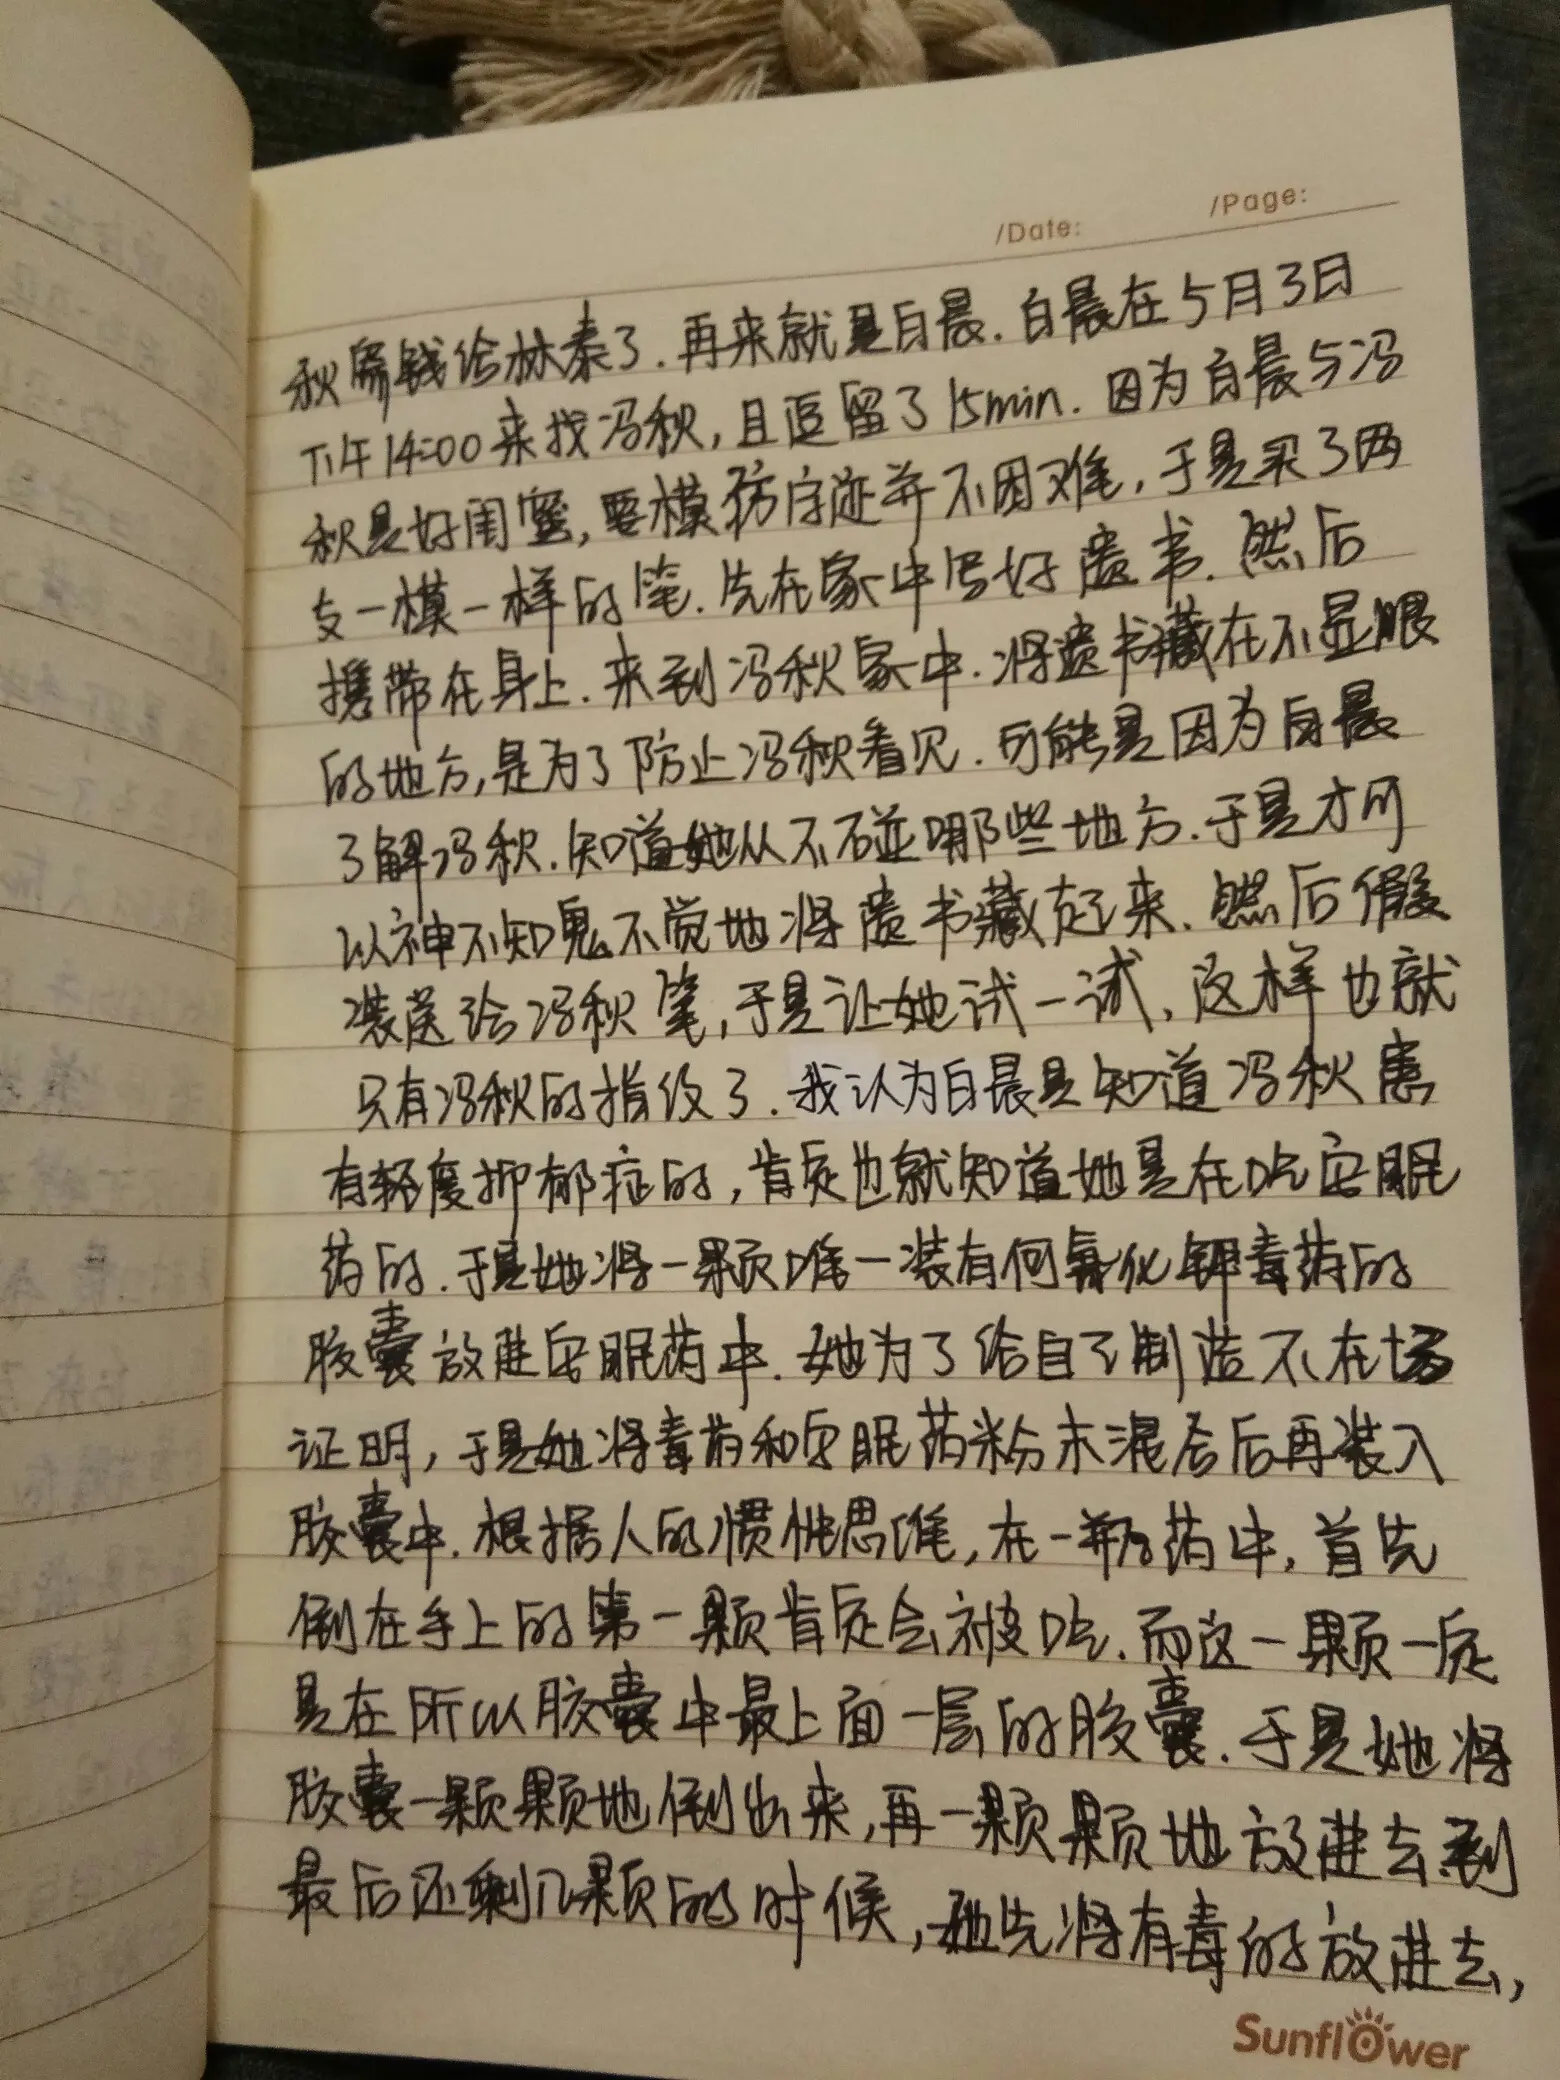 /Date: /Page:
秋寄钱给林泰了.再来就是白晨.白晨在5月3日
下午14:00来找冯秋,且逗留了15min.因为白晨与冯
秋是好闺蜜,要模彷字迹并不困难,于是买了两
支一模一样的笔.先在家中写好遗书.然后
携带在身上.来到冯秋家中.将遗书藏在不显眼
的地方,是为了防止冯秋看见.可能是因为白晨
了解冯秋.知道她从不碰哪些地方.于是才可
以神不知鬼不觉地将遗书藏起来.然后假
装送给冯秋笔,于是让她试一试,这样也就
只有冯秋的指纹了.我认为白晨是知道冯秋患
有轻度抑郁症的,肯定也就知道她是在吃安眠
药的.于是她将一颗唯一装有何氰化钾毒药的
胶囊放进安眠药中.她为了给自己制造不在场
证明,于是她将毒药和安眠药粉末混合后再装入
胶囊中.根据人的惯性思维,在一瓶药中,首先
倒在手上的第一颗肯定会被吃.而这一颗一定
是在所以胶囊中最上面一层的胶囊.于是她将
胶囊一颗颗地倒出来,再一颗颗地放进去到
最后还剩几颗的时候,她先将有毒的放进去,
Sunflower